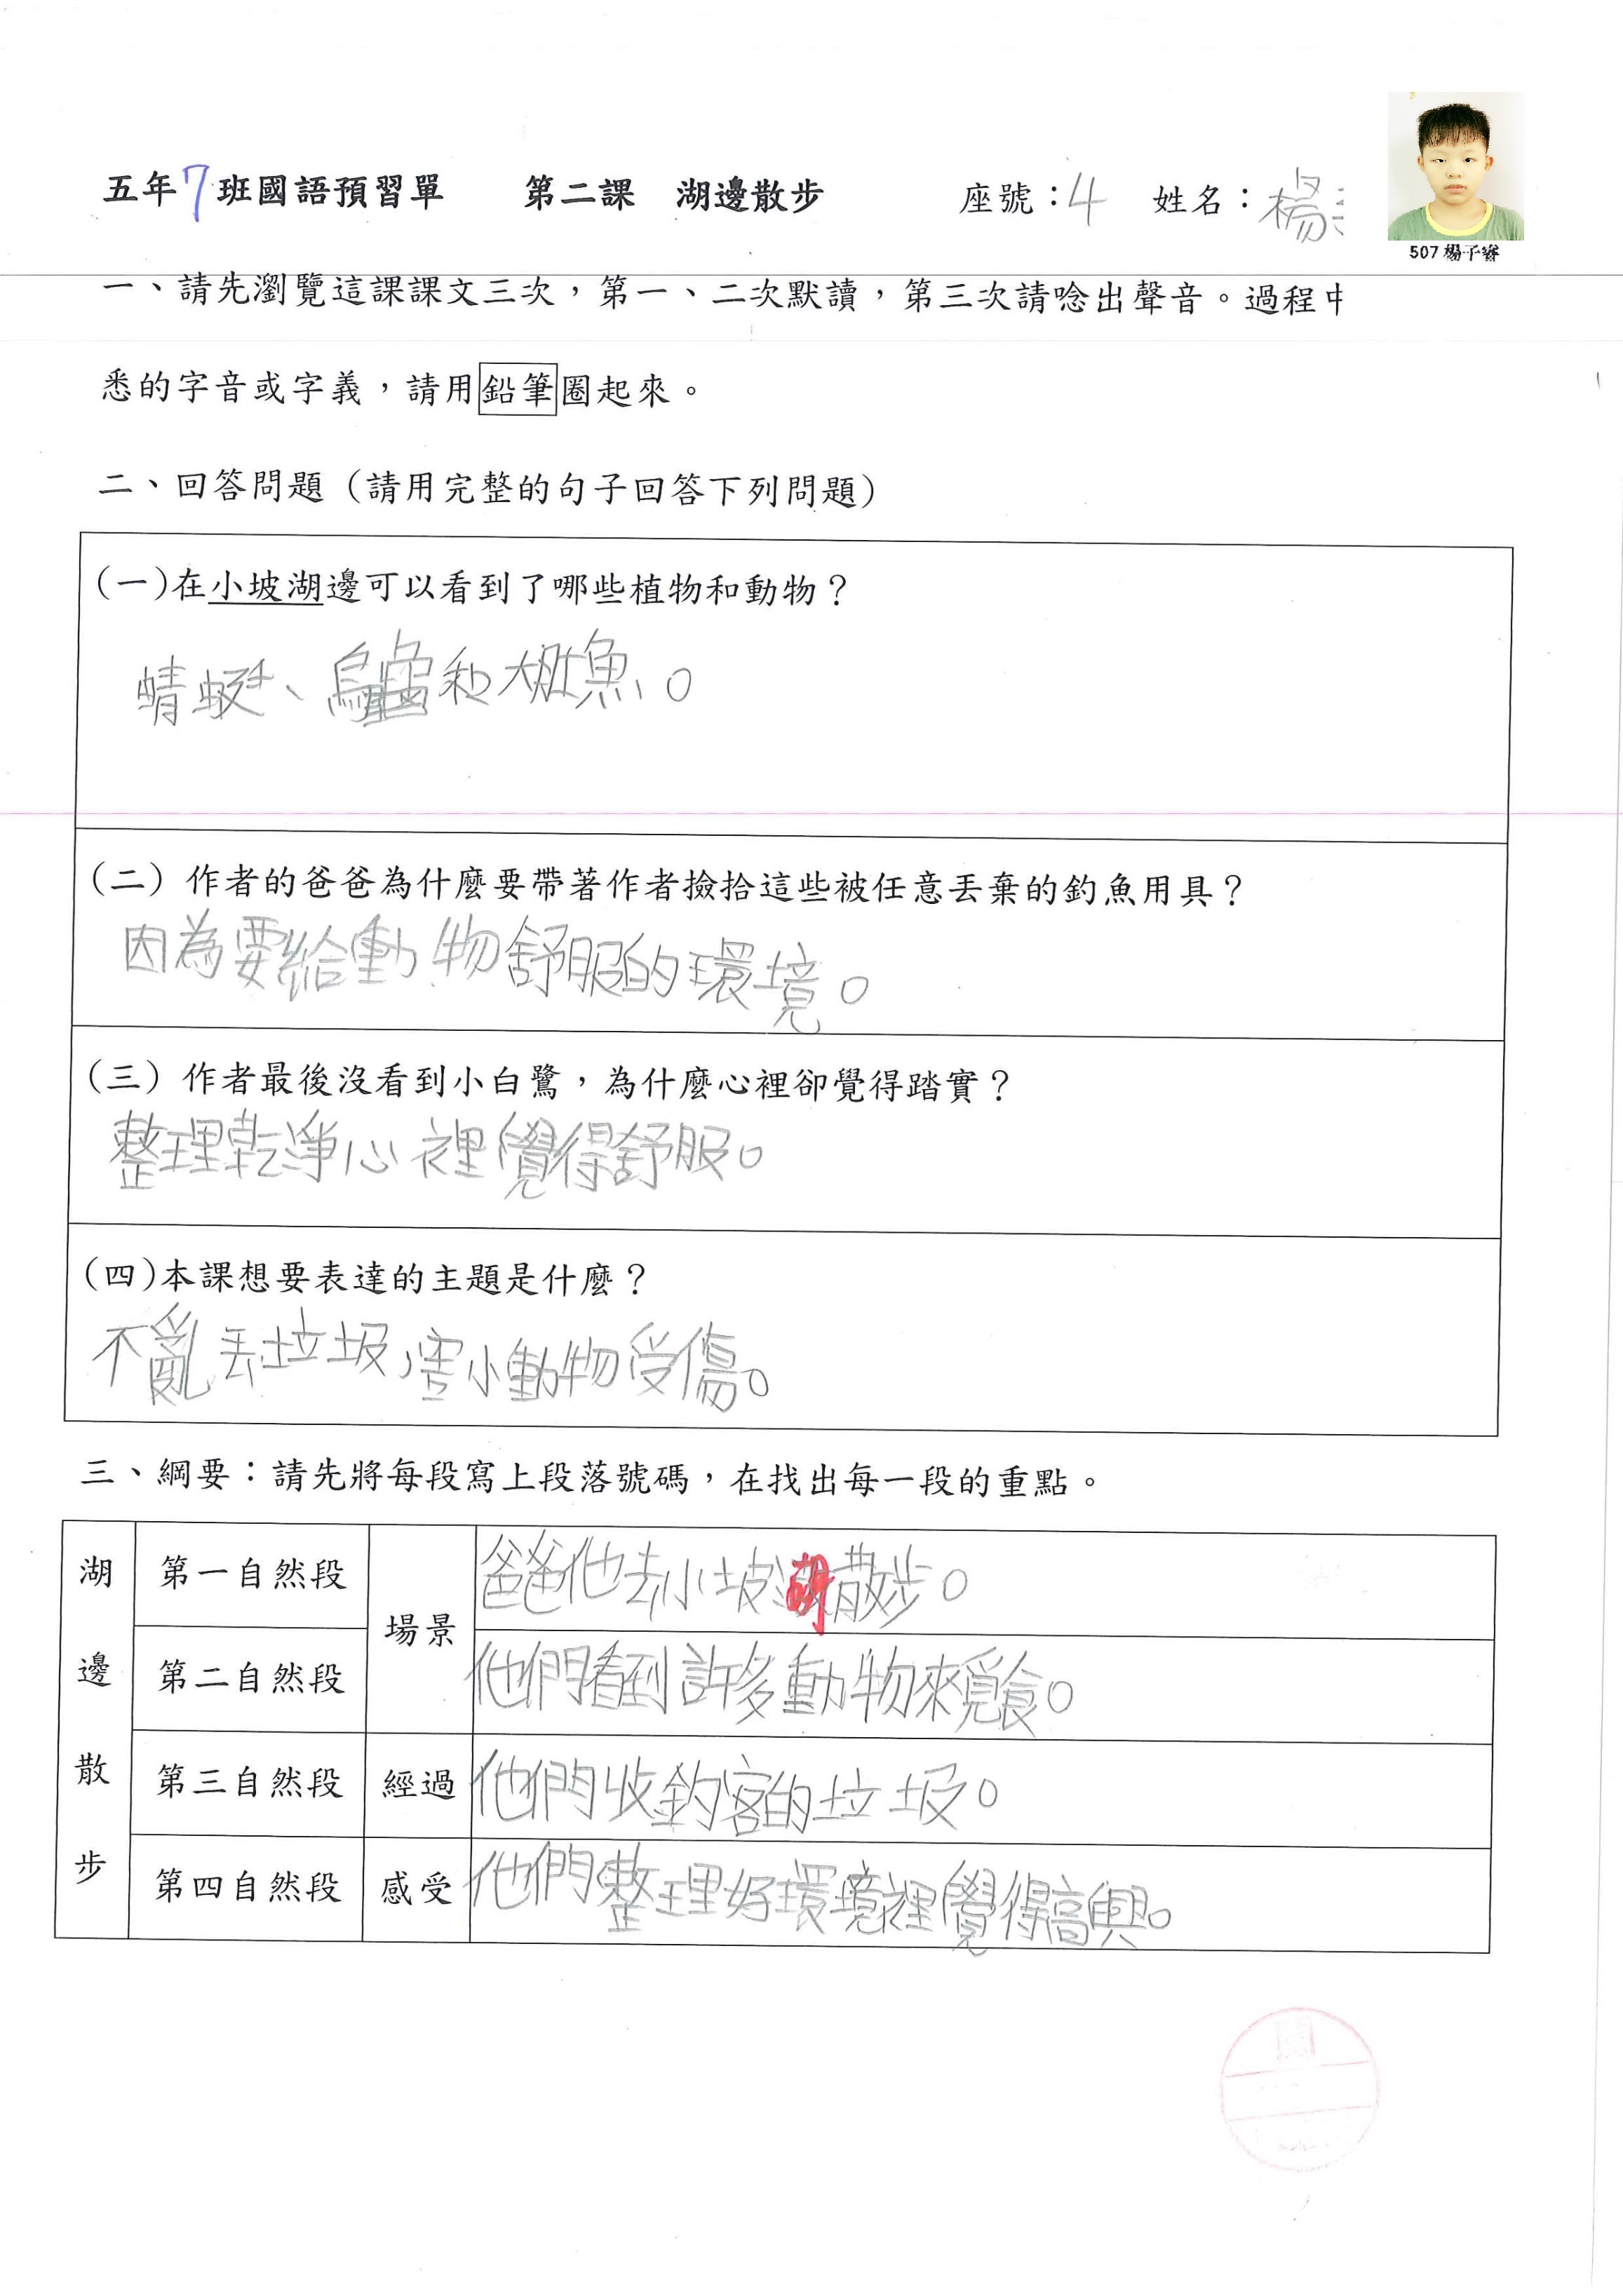 五年7班國語預習單 第二課 湖邊散步 座號：4 姓名：楊
507 楊子睿
一、請先瀏覽這課課文三次，第一、二次默讀，第三次請唸出聲音。過程中
悉的字音或字義，請用鉛筆圈起來。
二、回答問題（請用完整的句子回答下列問題）
(一)在小坡湖邊可以看到了哪些植物和動物？
蜻蜓、烏龜和大肚魚。
(二) 作者的爸爸為什麼要帶著作者撿拾這些被任意丟棄的釣魚用具？
因為要給動物舒服的環境。
(三) 作者最後沒看到小白鷺，為什麼心裡卻覺得踏實？
整理乾淨心裡覺得舒服。
(四)本課想要表達的主題是什麼？
不亂丟垃圾，害小動物受傷。
三、綱要：請先將每段寫上段落號碼，在找出每一段的重點。
湖邊散步
第一自然段 場景 爸爸他去小坡湖散步。
第二自然段 他們看到許多動物來覓食。
第三自然段 經過 他們收釣客的垃圾。
第四自然段 感受 他們整理好環境裡覺得高興。
閱